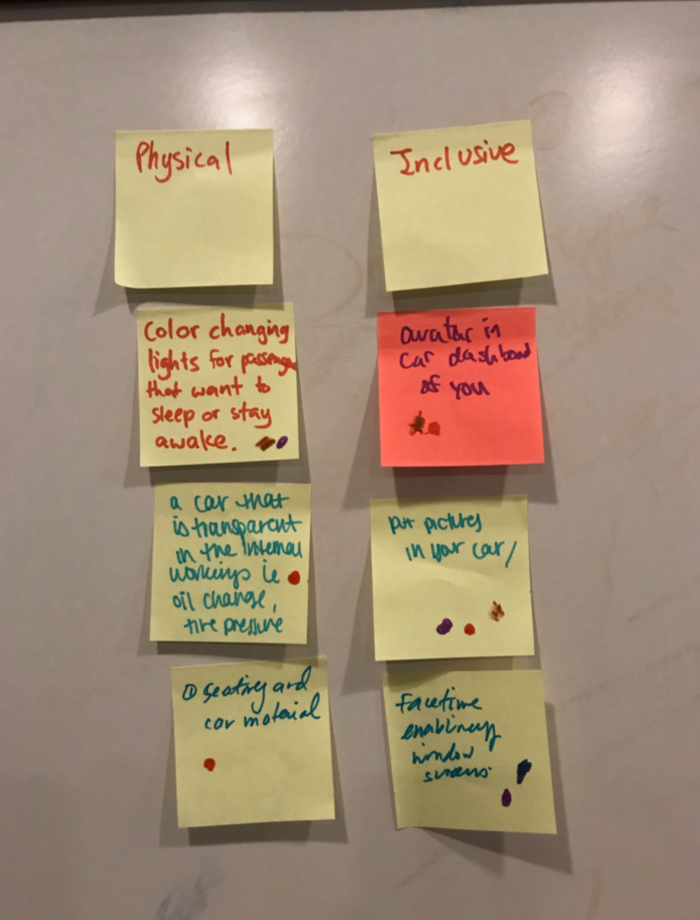 Physical
Color changing
lights for passenge
that want to
sleep or stay
awake.
a car that
is transparent
in the internal
workings ie
oil change,
tire pressure
① seating and
car material
Inclusive
avatar in
car dashboad
of you
put pictures
in your car/
facetime
enabling
window
screens.